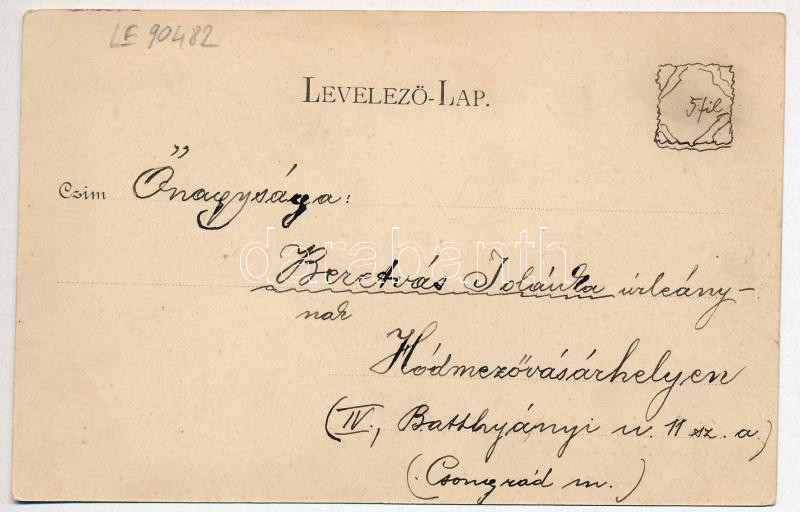 LE 90482
LEVELEZŐ-LAP.
5 fil
Czim Őnagysága:
darabanth
Beretvás Iolánka úrleány-
nak
Hódmezővásárhelyen
(IV., Batthyányi u. 11 sz. a.)
(Csongrád m.)